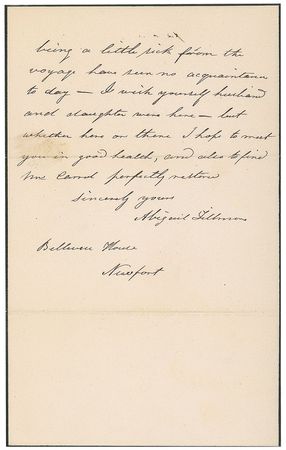 being a little sick from the
voyage have seen no acquaintance
to day — I wish yourself husband
and daughter were here — but
whether here or there I hope to meet
you in good health, and also to find
Mrs Carrol perfectly restored
Sincerely yours
Abigail Tillman
Bellevue House
Newport